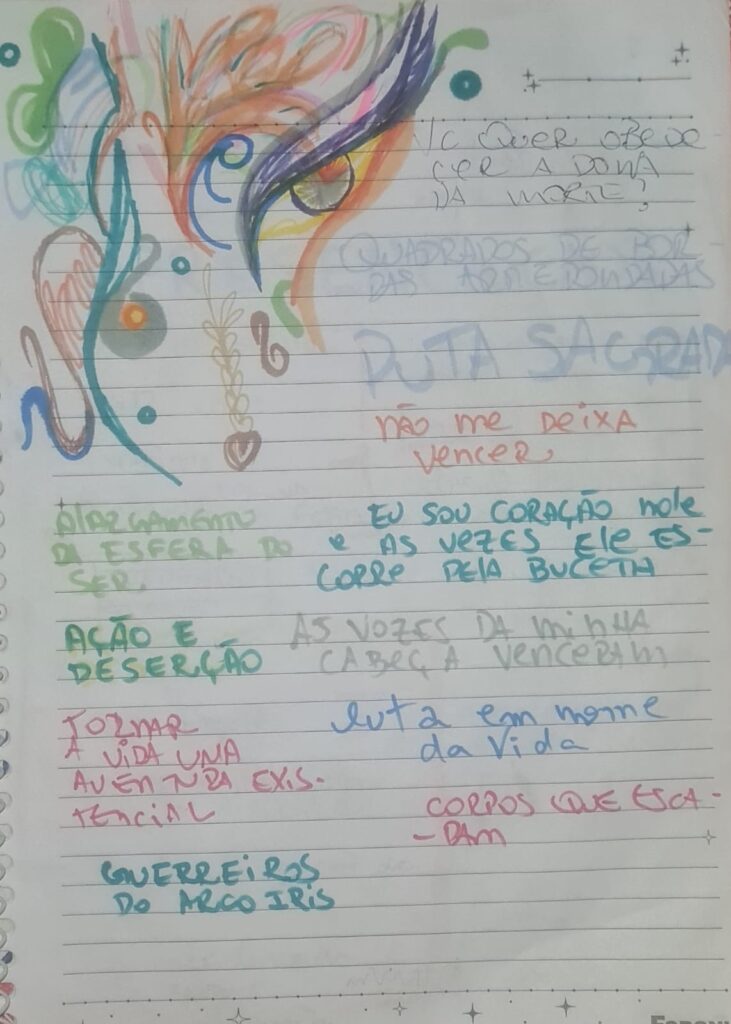 Vc QUER OBEDE
CER A DONA
DA MORTE?
QUADRADOS DE BOR-
DAS ARREDONDADAS
PUTA SAGRADA
NÃO ME DEIXA
VENCER
ALARGAMENTO
DA ESFERA DO
SER
EU SOU CORAÇÃO mole
e AS VEZES ELE ES-
CORRE PELA BUCETA
AÇÃO E
DESERÇÃO
AS VOZES DA MINHA
CABEÇA VENCERAM
TORNAR
A VIDA UMA
AVENTURA EXIS-
TENCIAL
luta em nome
da Vida
CORPOS QUE ESCA-
-PAM
GUERREIROS
DO ARCO IRIS